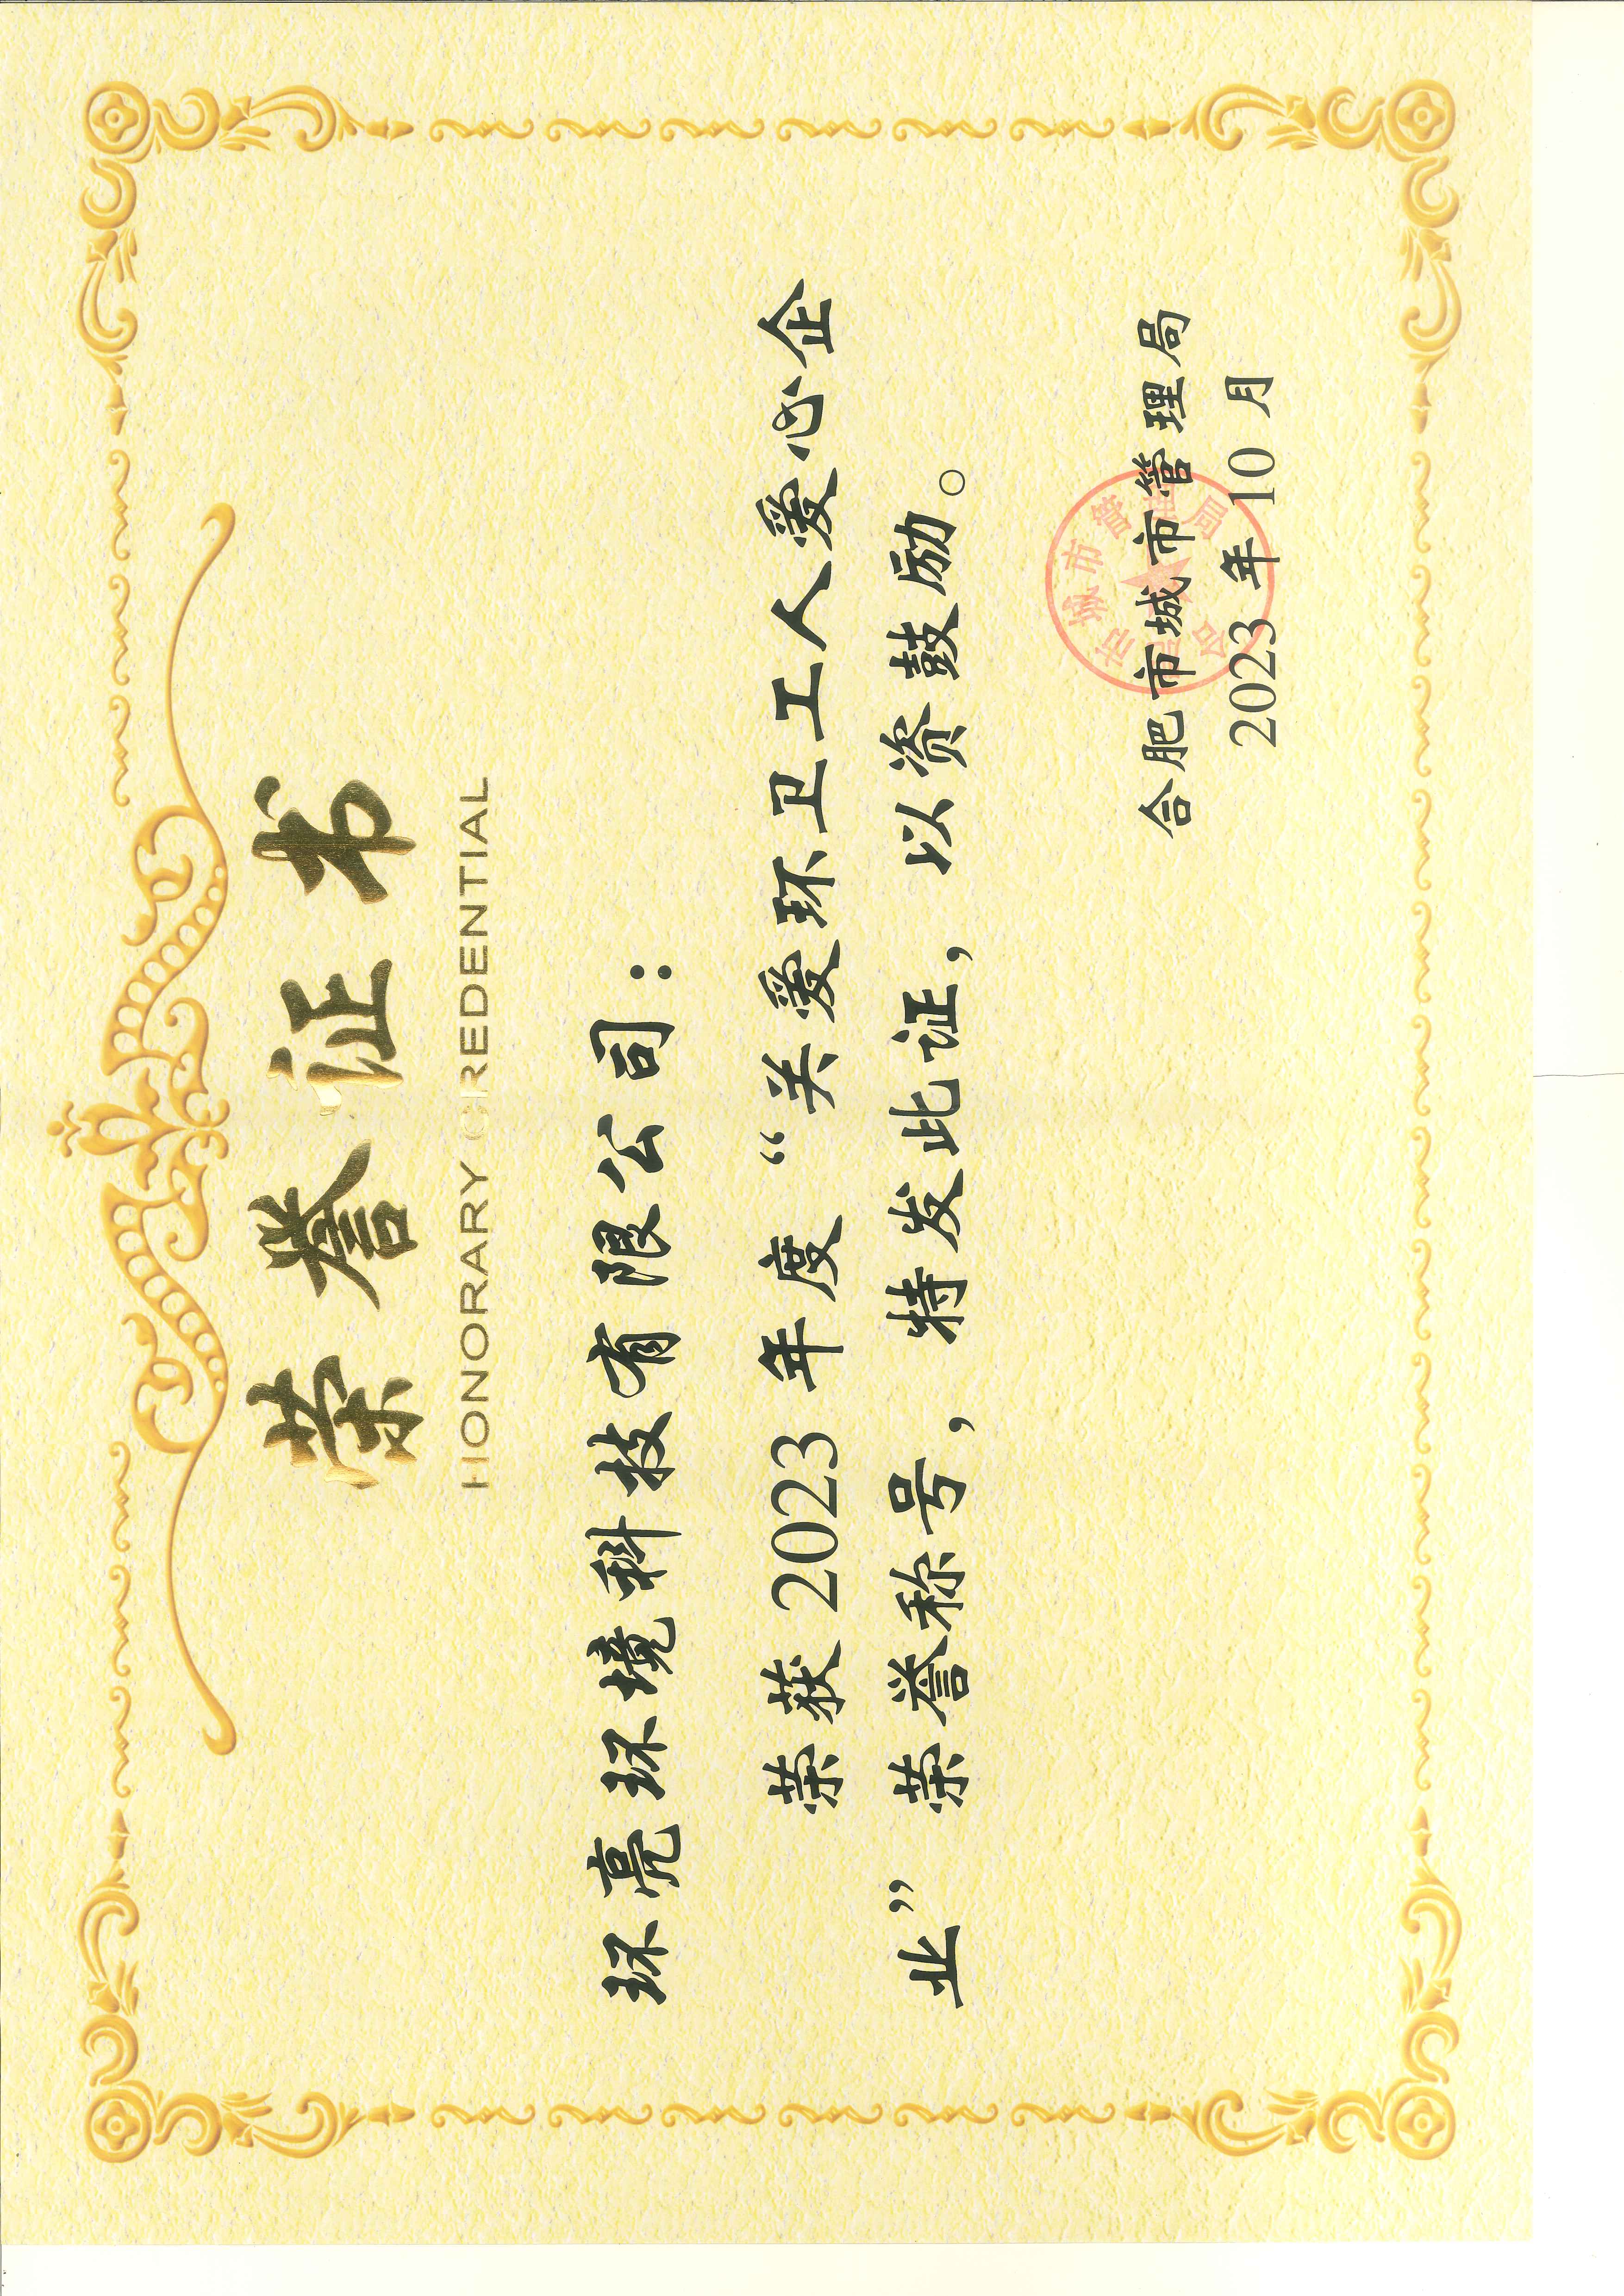 荣誉证书
HONORARY CREDENTIAL
环亮环境科技有限公司：
荣获2023年度“关爱环卫工人爱心企
业”荣誉称号，特发此证，以资鼓励。
合肥市城市管理局
2023年10月
合肥市城市管理局